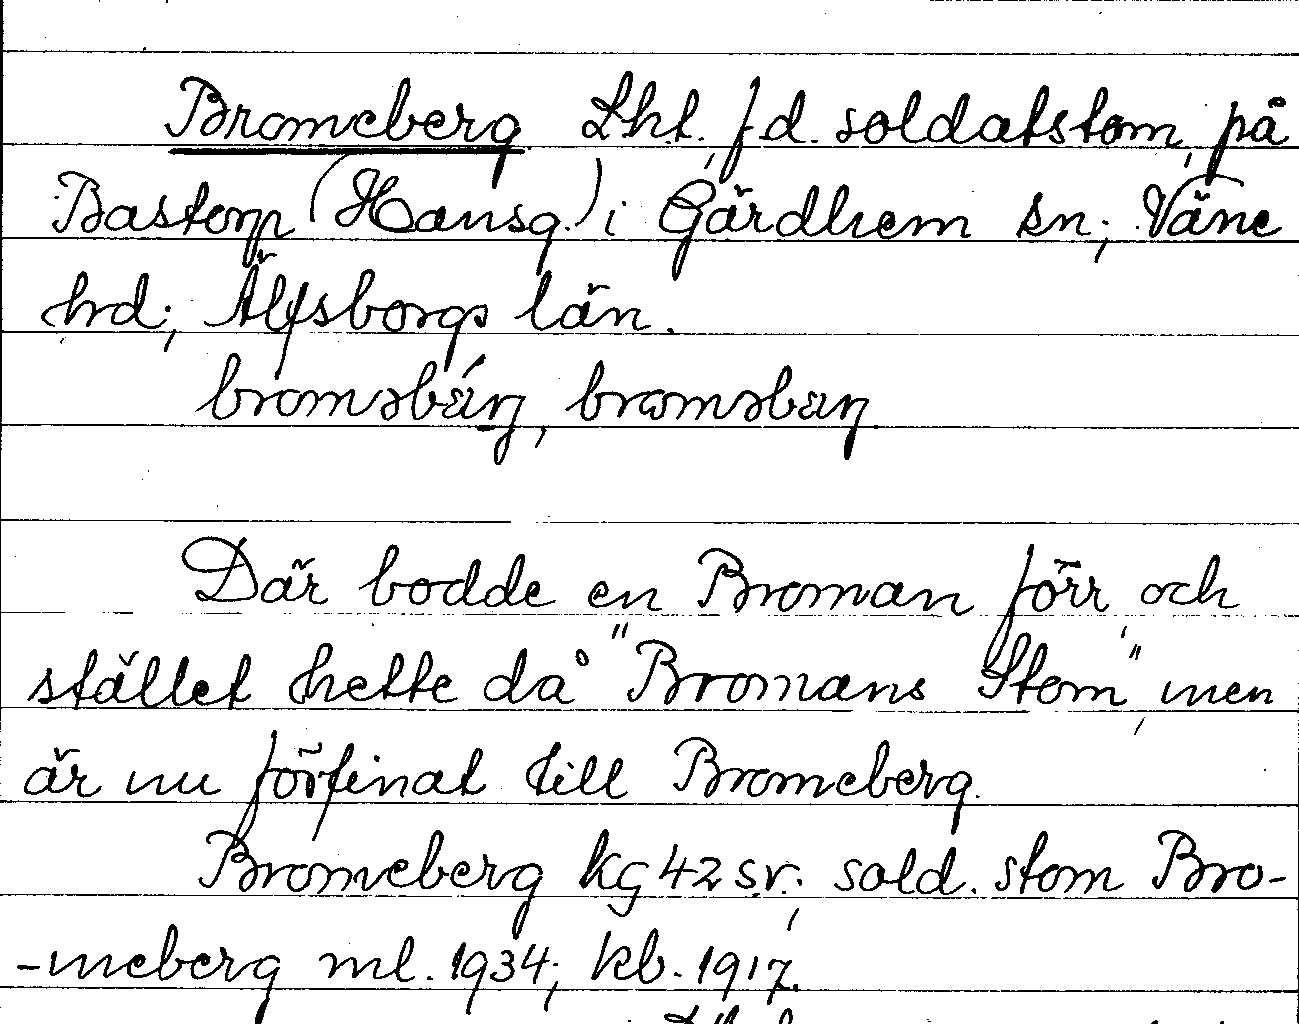 Bromeberg Lht, f.d. soldatstom, på
Bastorp (Hansg.) i Gärdhem sn; Väne
hrd; Älfsborgs län.
Där bodde en Broman förr, och
stället hette då "Bromans Stom", men
är nu förfinat till Bromeberg.
Bromeberg kg 42 sv; sold. stom Bro-
-meberg ml. 1934; kb. 1917.